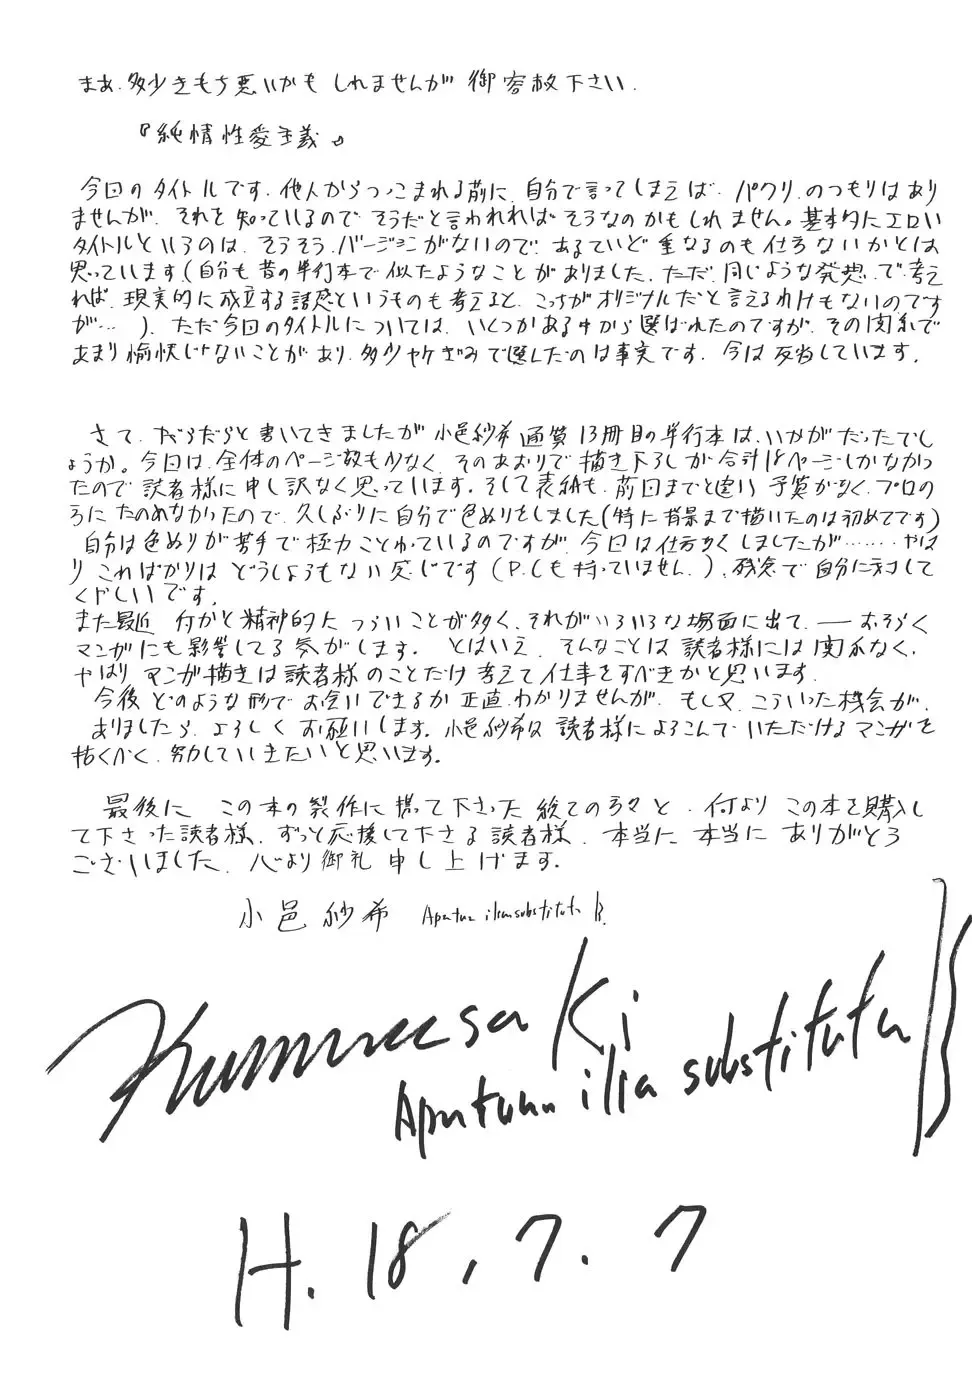 まあ、多少きもち悪いかもしれませんが御容赦下さい、
『純情性愛主義』
今回のタイトルです、他人からつっこまれる前に、自分で言ってしまえば、パクリのつもりはあり
ませんが、それを知っているのでそうだと言われればそうなのかもしれません。基本的にエロい
タイトルというのは、そうそうバージョンがないので、あるていど重なるのも仕方ないかとは
思っています(自分も昔の単行本で似たようなことがありました、ただ、同じような発想、で考え
れば、現実的に成立する誘惑というものも考えると、こっちがオリジナルだと言えるわけもないのです
が…)、ただ今回のタイトルについては、いくつかある中から選ばれたのですが、その関係で
あまり愉快じゃないことがあり、多少ヤケぎみで選んだのは事実です、今は反省しています、
さて、だらだらと書いてきましたが小邑紗希通算13冊目の単行本は、いかがだったでし
ょうか。今回は、全体のページ数も少なく、そのあおりで描き下ろしが合計18ページしかなかっ
たので読者様に申し訳なく思っています。そして表紙も、前回までと違い予算がなく、プロの
方にたのめなかったので、久しぶりに自分で色ぬりをしました(特に背景まで描いたのは初めてです)
自分は色ぬりが苦手で極力ことわっているのですが、今回は仕方なくしましたが………やは
りこればかりはどうしようもない感じです(P.Cも持っていません、)、残念で自分に対して
くやしいです、
また最近何かと精神的につらいことが多く、それがいろいろな場面に出て、―おそらく
マンガにも影響してる気がします。とはいえ、そんなことは読者様には関係なく、
やはりマンガ描きは読者様のことだけ考えて仕事をすべきかと思います、
今後どのような形でお会いできるか正直わかりませんが、もし又、こういった機会が、
ありましたら、よろしくお願いします。小邑紗希は読者様によろこんでいただけるマンガを
描くべく、努力していきたいと思います。
最後にこの本の製作に携って下さった総ての方々と、何よりこの本を購入し
て下さった読者様、ずっと応援して下さる読者様、本当に本当にありがとう
ございました、心より御礼申し上げます。
小邑紗希 Apatura ilia substituta B.
Kumuu saKi
Apatura ilia substituta B
H.18,7.7